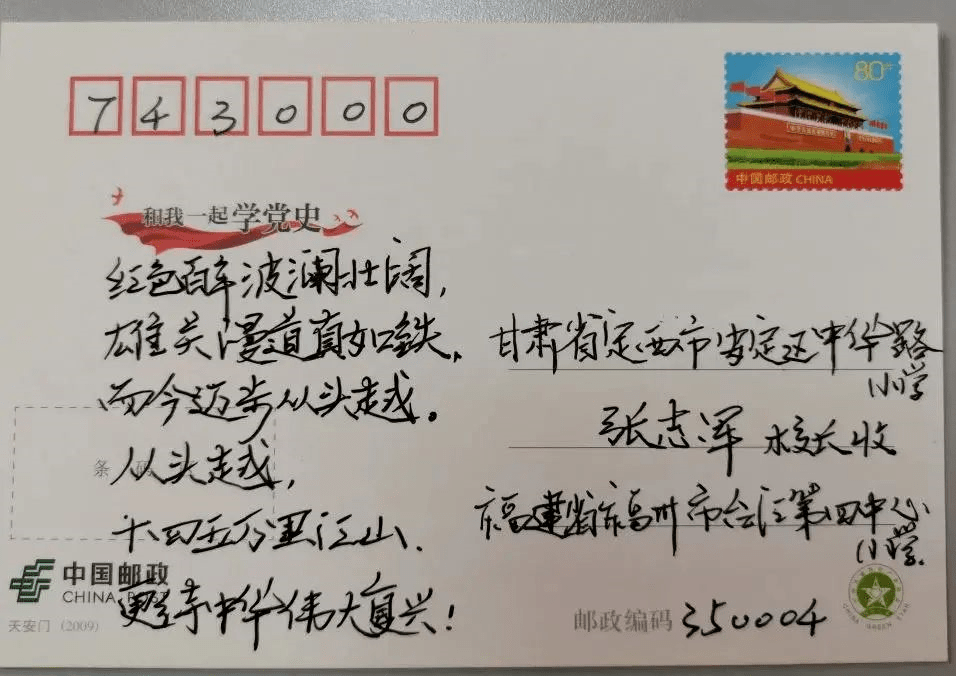 743000
80分
中国邮政 CHINA
和我一起学党史
红色百年波澜壮阔，
雄关漫道真如铁，
而今迈步从头越。
从头越，
十四五万里江山、
中华伟大复兴！
甘肃省定西市安定区中华路
小学
张志军 校长收
福建省福州市仓江第四中心
小学
条码
中国邮政
CHINA POST
天安门（2009）
邮政编码 350004
CHINA GREEN STAR